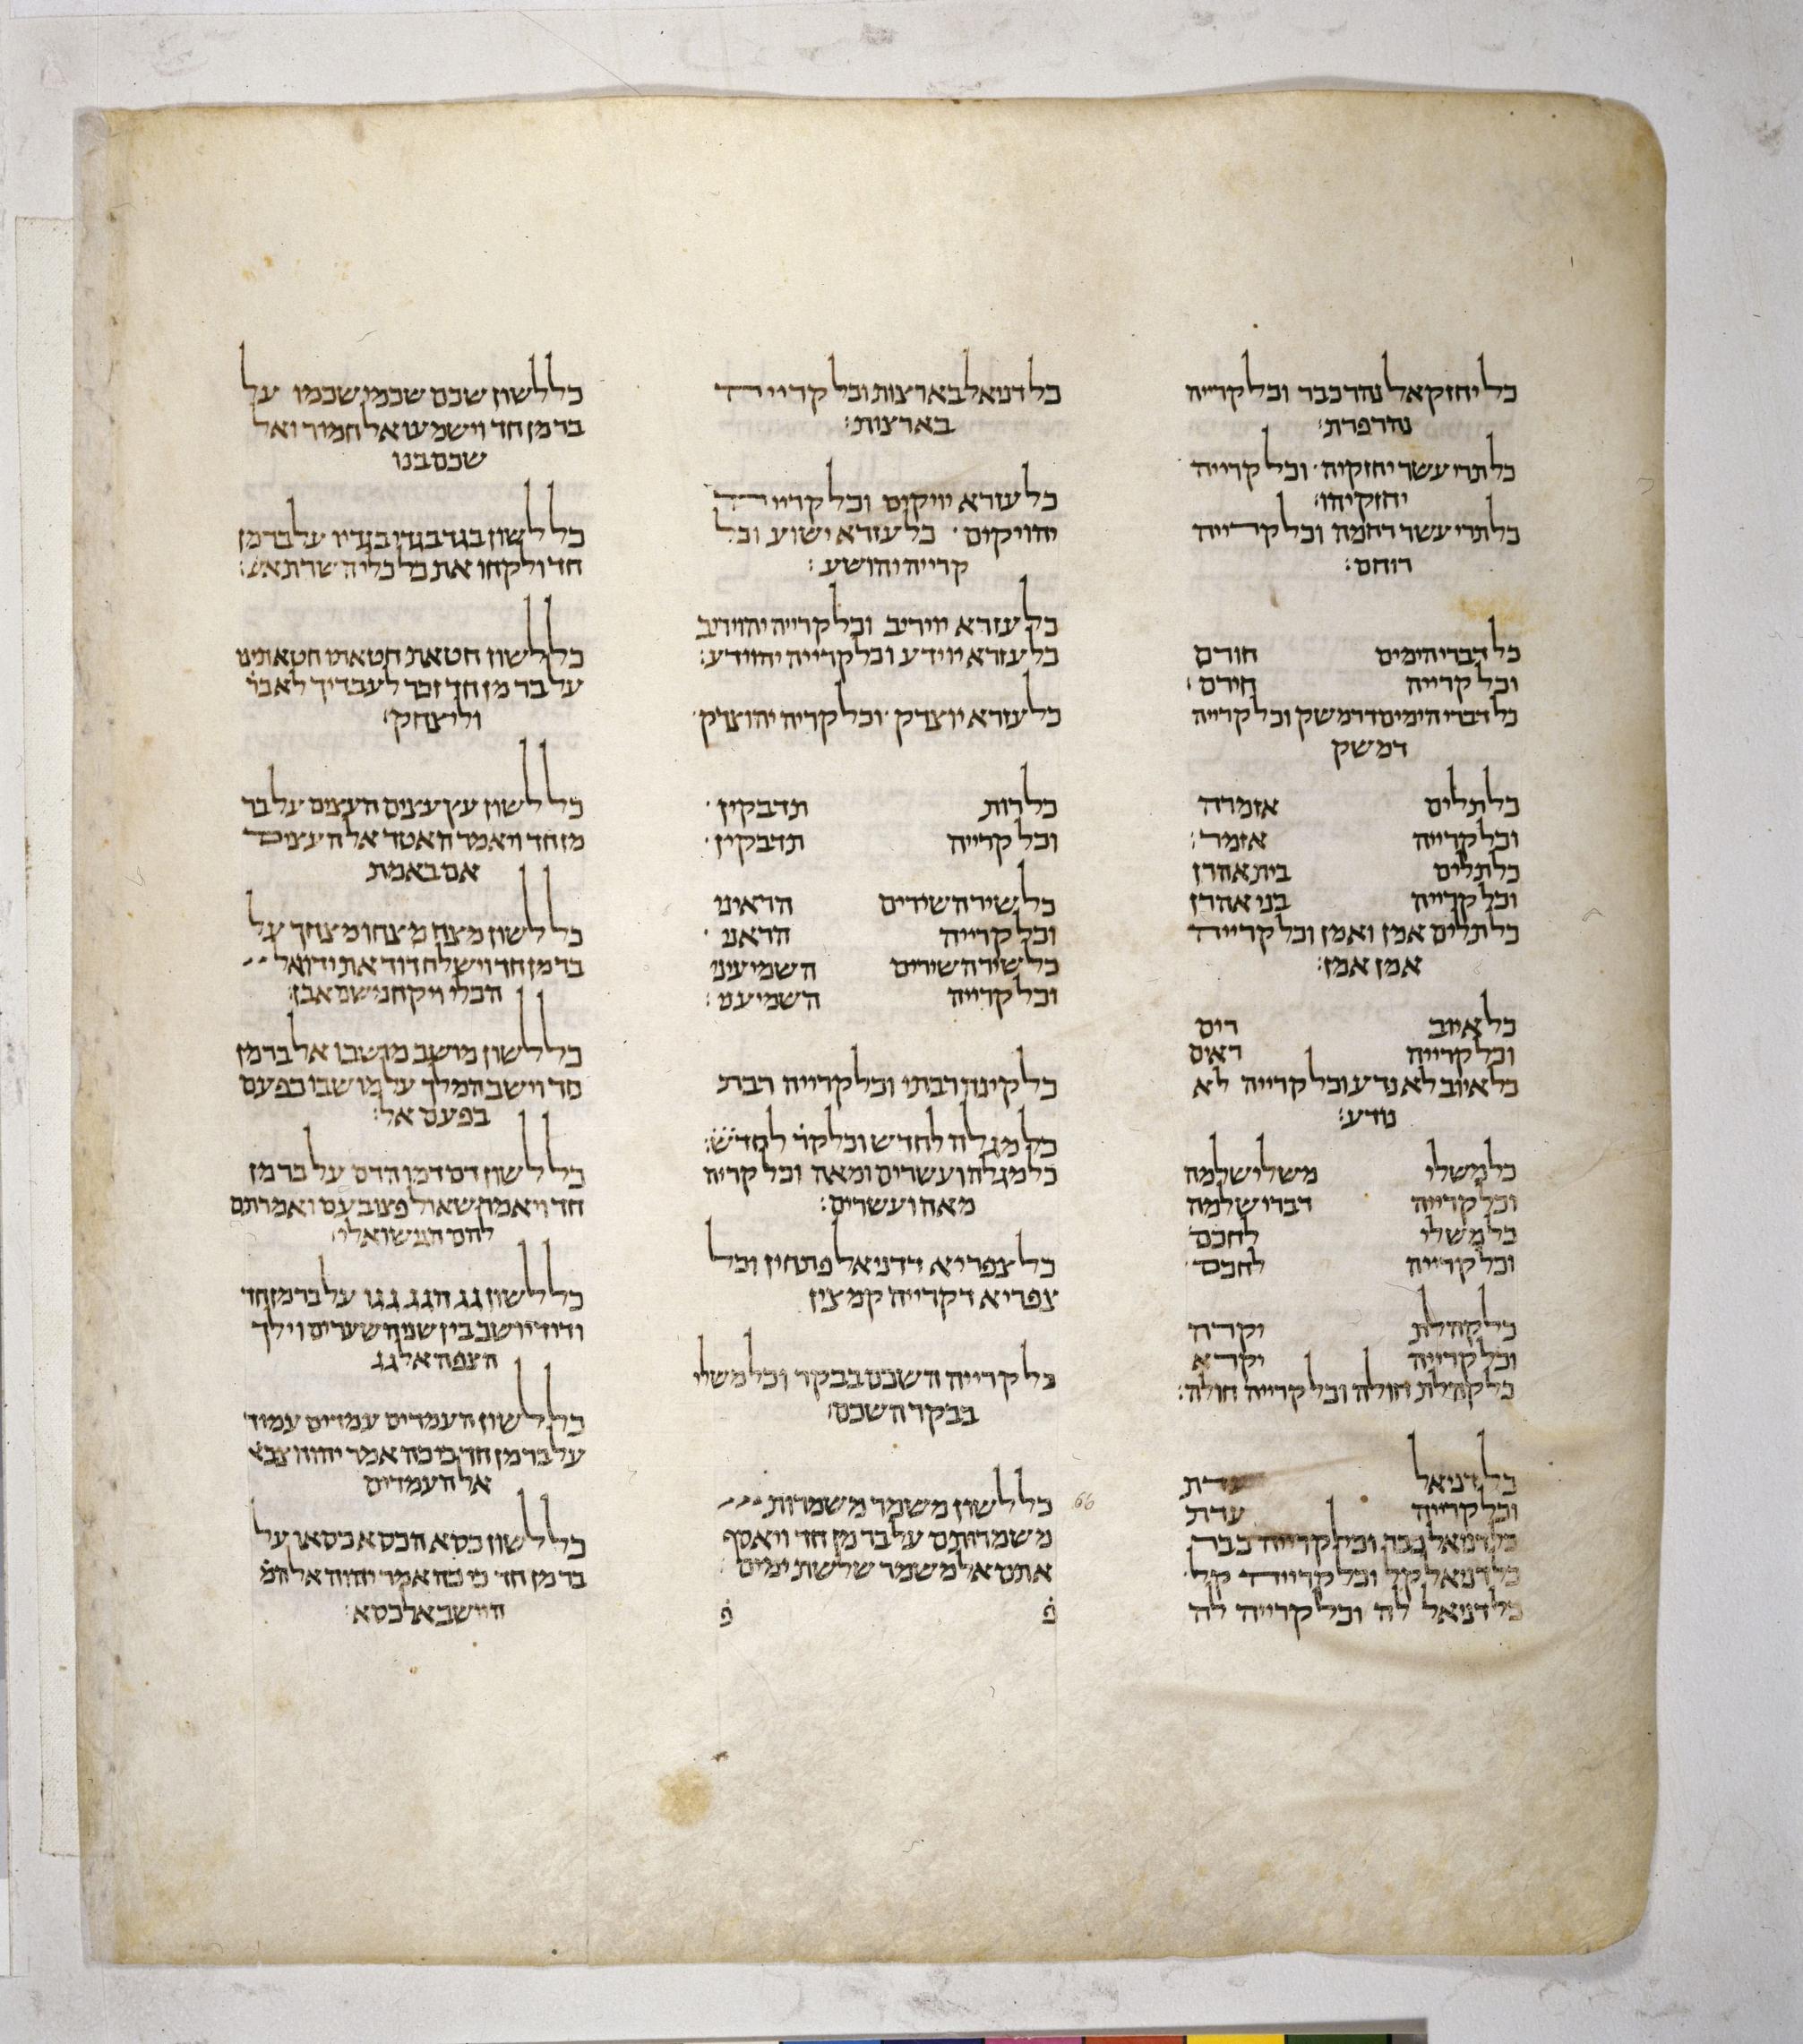 כל יחזקאל נהר כבר וכל קריה
נהר פרת׃
כל תרי עשר יחזקיה וכל קרייה
יחזקיהו׃
כל תרי עשר רחמה וכל קרייה
רוחם׃
כל דברי הימים חורם
וכל קרייה חירם׃
כל דברי הימים דרמשק וכל קרייה
דמשק
כל תלים אזמרה
וכל קרייה אזמר׃
כל תלים בית אהרן
וכל קרייה בני אהרן
כל תלים אמן ואמן וכל קרייה
אמן אמן׃
כל איוב רים
וכל קרייה ראים
כל איוב לא נדע וכל קרייה לא
נודע׃
כל משלי משלי שלמה
וכל קרייה דברי שלמה
כל משלי לחכם
וכל קרייה לחכם
כל קהלת יקרה
וכל קרייה יקרא
כל קהלת חולה וכל קרייה חולה׃
כל דניאל
וכל קרייה עדת
כל דניאל וכל קרייה ככה
כל דניאל קל וכל קרייה קל
כל דניאל לה וכל קרייה לה
כל דניאל בארצות וכל קרייה
בארצות׃
כל עזרא יויקים וכל קרייה
יהויקים כל עזרא ישוע וכל
קרייה יהושע׃
כל עזרא יויריב וכל קרייה יהויריב
כל עזרא יוידע וכל קרייה יהוידע׃
כל עזרא יוצדק וכל קריה יהוצדק
כל רות תדבקין
וכל קרייה תדבקין
כל שיר השירים הראיני
וכל קרייה הראני
כל שיר השירים השמיעיני
וכל קרייה השמיעני׃
כל קינה רבתי וכל קרייה רבת
כל מגלה לחדש וכל קר׳ לחדש׃
כל מגלה ועשרים ומאה וכל קריה
מאה ועשרים׃
כל צפריא דדניאל פתחין וכל
צפריא דקרייה קמצין
כל קרייה השכם בבקר וכל משלי
בבקר השכם׃
כל לשון משמר משמרות
משמרותם על בר מן חד ויאסף
אתם אל משמר שלשת ימים׃
פ פ
66
כל לשון שכם שכמי שכמו על
בר מן חד וישמעו אל חמור ואל
שכם בנו
כל לשון בגד בגדי בגדיו על בר מן
חד ולקחו את כל כלי השרת אש׃
כל לשון חטאת חטאתו חטאתינו
על בר מן חד זכר לעבדיך לאבר׳
וליצחק׃
כל לשון עץ עצים העצים על בר
מן חד ויאמר האטד אל העצים
אם באמת
כל לשון מצח מצחו מצחך על
בר מן חד וישלח דוד את ידו אל
הכלי ויקח משם אבן׃
כל לשון מושב מושבו אל בר מן
חד וישב המלך על מושבו כפעם
בפעם אל׃
כל לשון דם דמו הדם על בר מן
חד ויאמר שאול פצו בעם ואמרתם
להם הגישו אלי׃
כל לשון גג הגג גגו על בר מן חד
ודוד יושב בין שני השערים וילך
הצפה אל גג
כל לשון העמדים עמדים עמוד
על בר מן חד כי כה אמר יהוה צבא׳
אל העמדים
כל לשון כסא הכסא כסאו על
בר מן חד כי כה אמר יהוה אל המ׳
היושב אל כסא׃